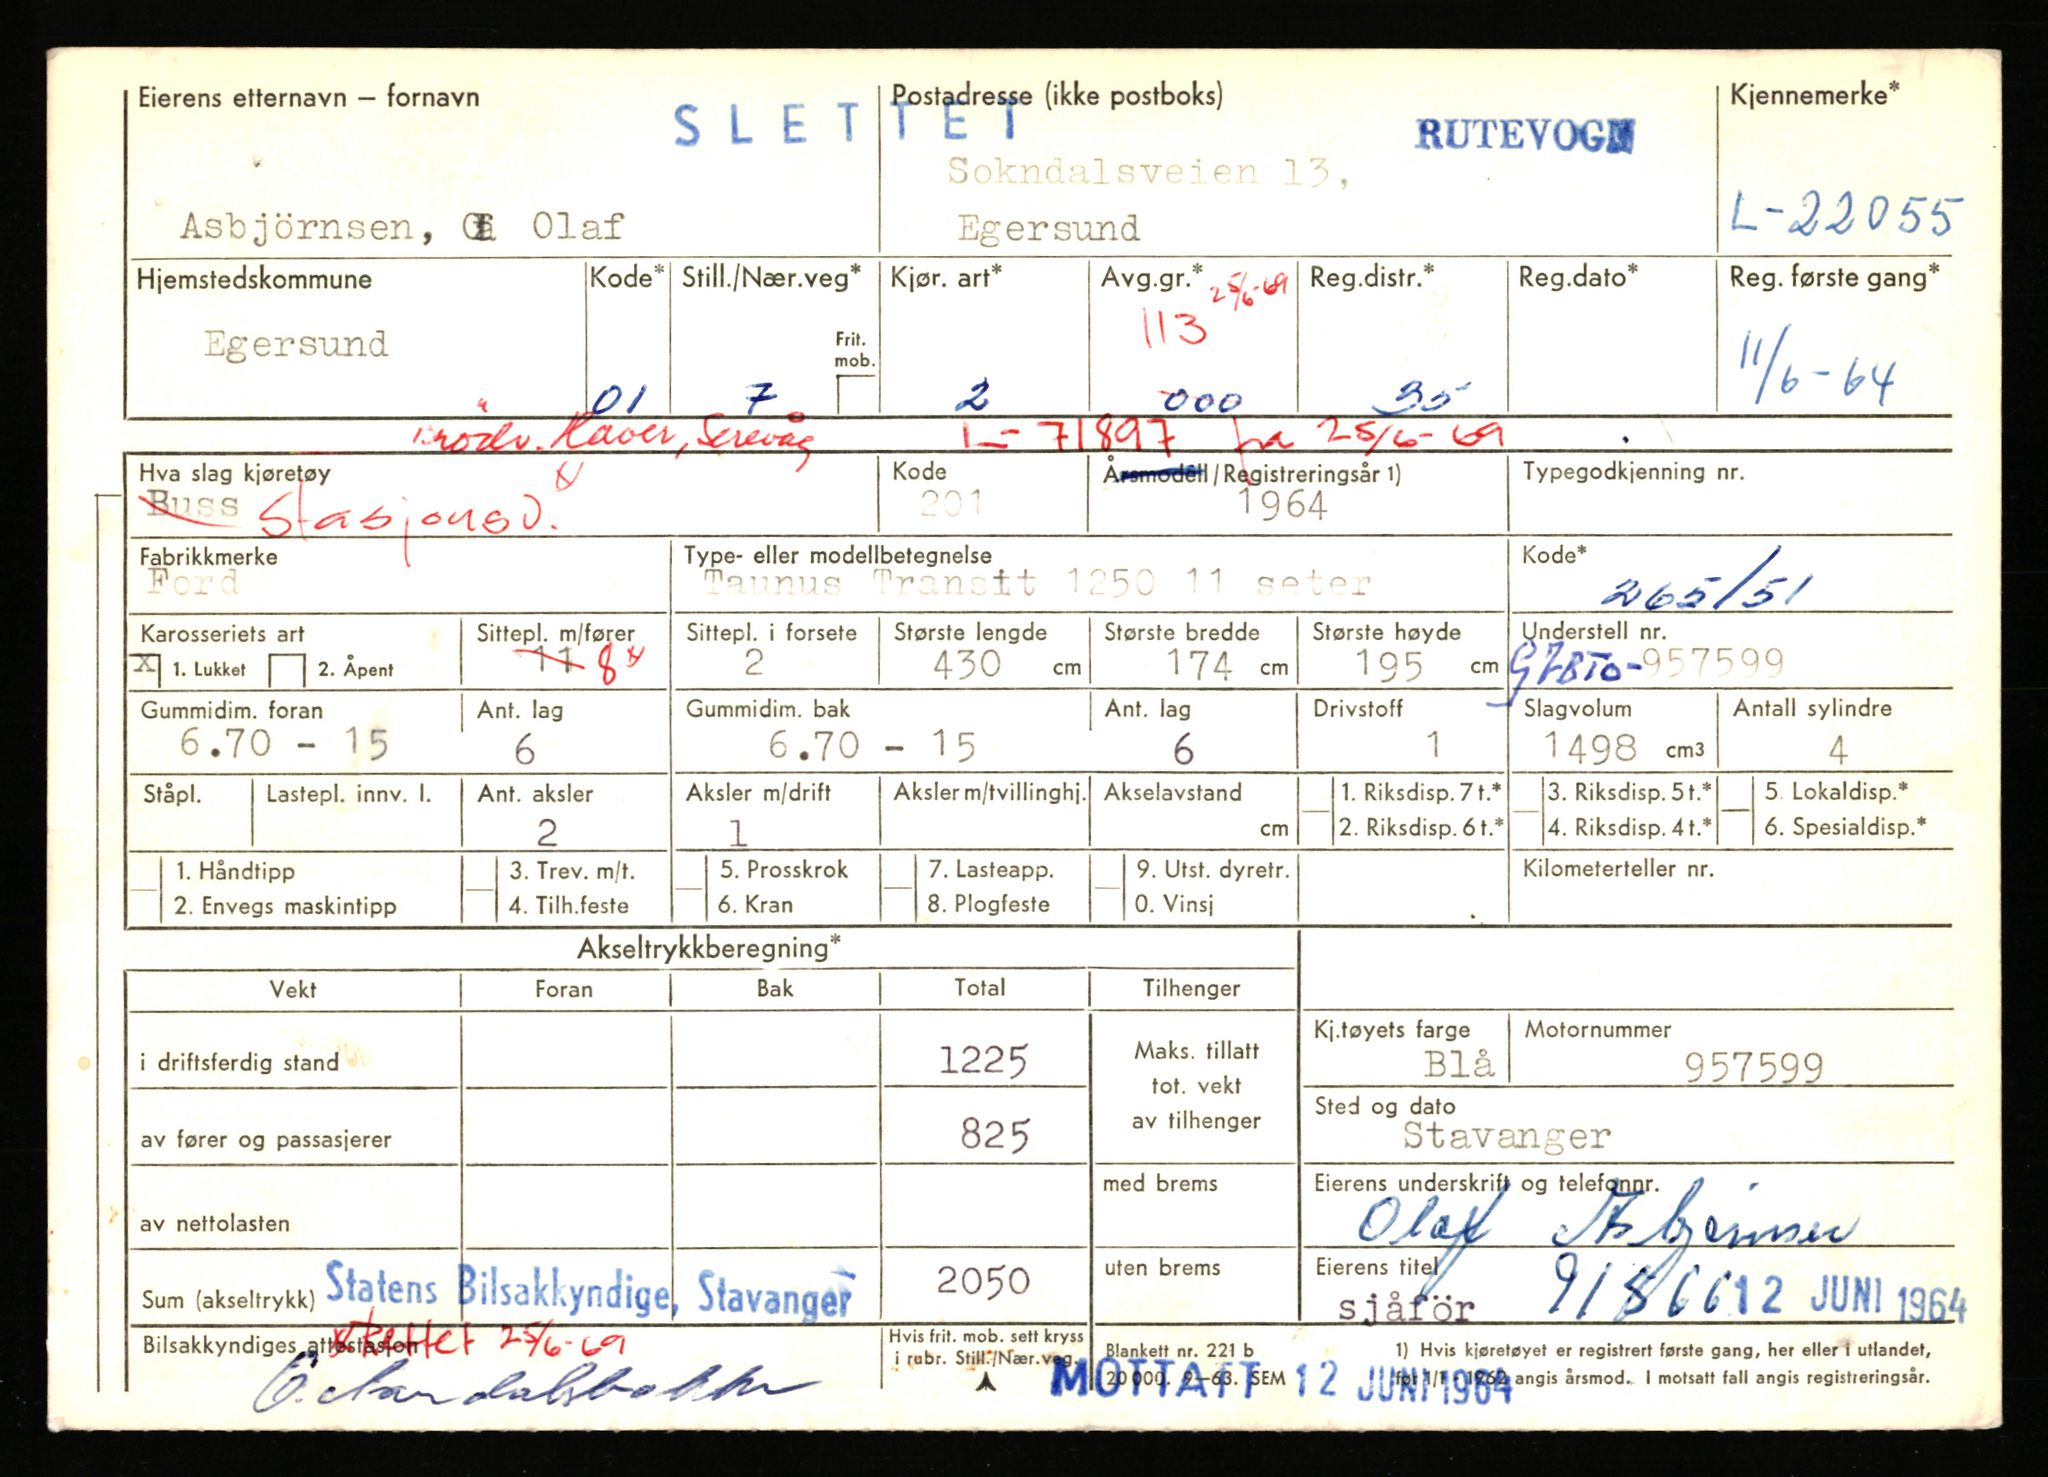 Eierens etternavn – fornavn
SLETTET
Postadresse (ikke postboks)
RUTEVOGN
Kjennemerke*
Sokndalsveien 13,
Asbjörnsen, Olaf
Egersund
L-22055
Hjemstedskommune Kode* Still./Nær.veg* Kjør. art* Avg.gr.* Reg.distr.* Reg.dato* Reg. første gang*
25/6-69
113
Egersund
Frit. mob.
11/6-64
01 7 2 000 35
L-71897 fra 25/6-69
Hva slag kjøretøy Kode Årsmodell/Registreringsår 1) Typegodkjenning nr.
Buss Stasjonsv. 201 1964
Fabrikkmerke Type- eller modellbetegnelse Kode*
Ford Taunus Transit 1250 11 seter 265/51
Karosseriets art Sittepl. m/fører Sittepl. i forsete Største lengde Største bredde Største høyde Understell nr.
X 1. Lukket 2. Åpent 11 8 x 2 430 cm 174 cm 195 cm G7BTO-957599
Gummidim. foran Ant. lag Gummidim. bak Ant. lag Drivstoff Slagvolum Antall sylindre
6.70 - 15 6 6.70 - 15 6 1 1498 cm3 4
Ståpl. Lastepl. innv. l. Ant. aksler Aksler m/drift Aksler m/tvillinghj. Akselavstand 1. Riksdisp. 7 t.* 3. Riksdisp. 5 t.* 5. Lokaldisp.*
2 1 cm 2. Riksdisp. 6 t.* 4. Riksdisp. 4 t.* 6. Spesialdisp.*
1. Håndtipp 3. Trev. m/t. 5. Prosskrok 7. Lasteapp. 9. Utst. dyretr. Kilometerteller nr.
2. Envegs maskintipp 4. Tilh.feste 6. Kran 8. Plogfeste 0. Vinsj
Akseltrykkberegning*
Vekt Foran Bak Total Tilhenger
Kj.tøyets farge Motornummer
i driftsferdig stand 1225 Maks. tillatt tot. vekt av tilhenger Blå 957599
Sted og dato
av fører og passasjerer 825 Stavanger
med brems Eierens underskrift og telefonnr.
av nettolasten Olaf Asbjørnsen
uten brems Eierens titel
Sum (akseltrykk) Statens Bilsakkyndige, Stavanger 2050 sjåför 91866 12 JUNI 1964
Bilsakkyndiges attestasjon x Rettet 25/6-69
Hvis frit. mob. sett kryss i rubr. Still./Nær.veg.
Blankett nr. 221 b
20 000. 9–63. SEM
1) Hvis kjøretøyet er registrert første gang, her eller i utlandet,
før 1/1 - 1962 angis årsmod. I motsatt fall angis registreringsår.
MOTTATT 12 JUNI 1964